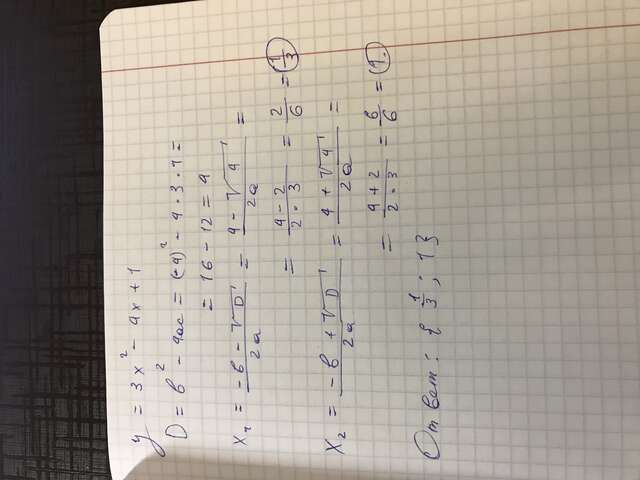 y = 3x² - 4x + 1
D = b² - 4ac = (-4)² - 4·3·1 =
= 16 - 12 = 4
x₁ = (-b - √D) / 2a = (4 - √4) / 2a =
= (4 - 2) / (2·3) = 2/6 = 1/3
x₂ = (-b + √D) / 2a = (4 + √4) / 2a =
= (4 + 2) / (2·3) = 6/6 = 1.
Ответ: { 1/3 ; 1 }